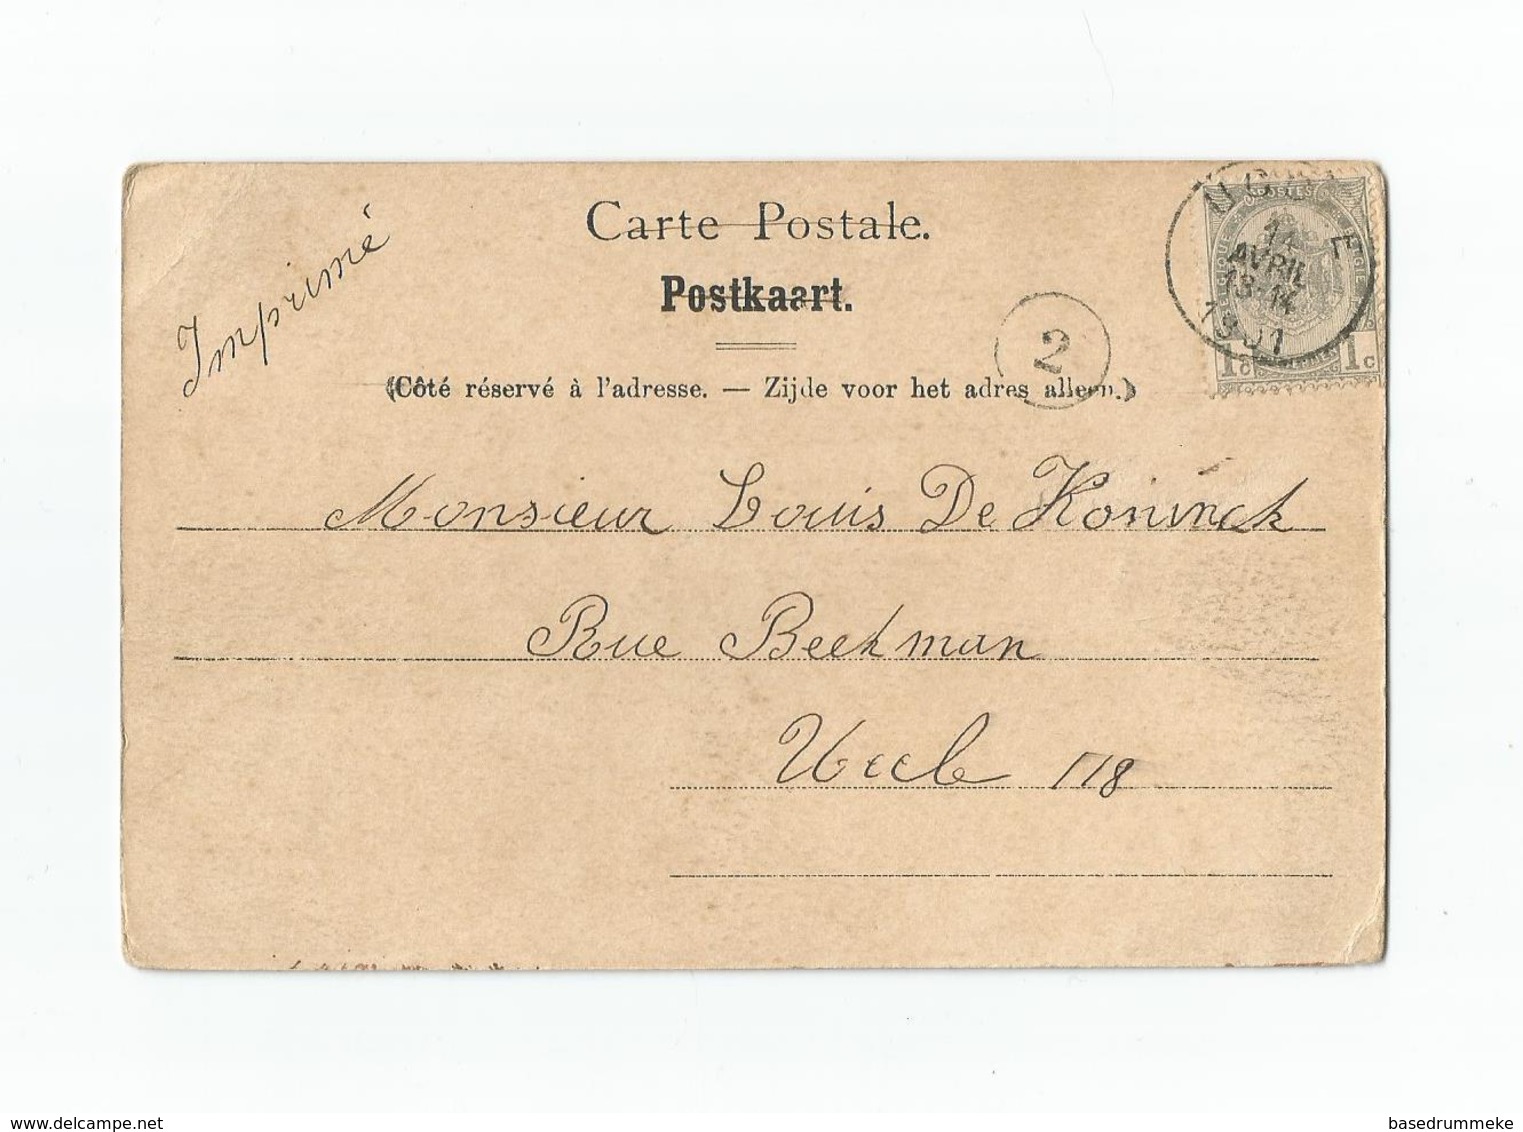 Carte Postale.
Postkaart.
Imprimé
(Côté réservé à l'adresse. — Zijde voor het adres alleen.)
2
POSTES
14
AVRIL
13-14
1901
1c 1c
Monsieur Louis De Koninck
Rue Beekman
Uccle 118
delcampe.net
basedrummeke